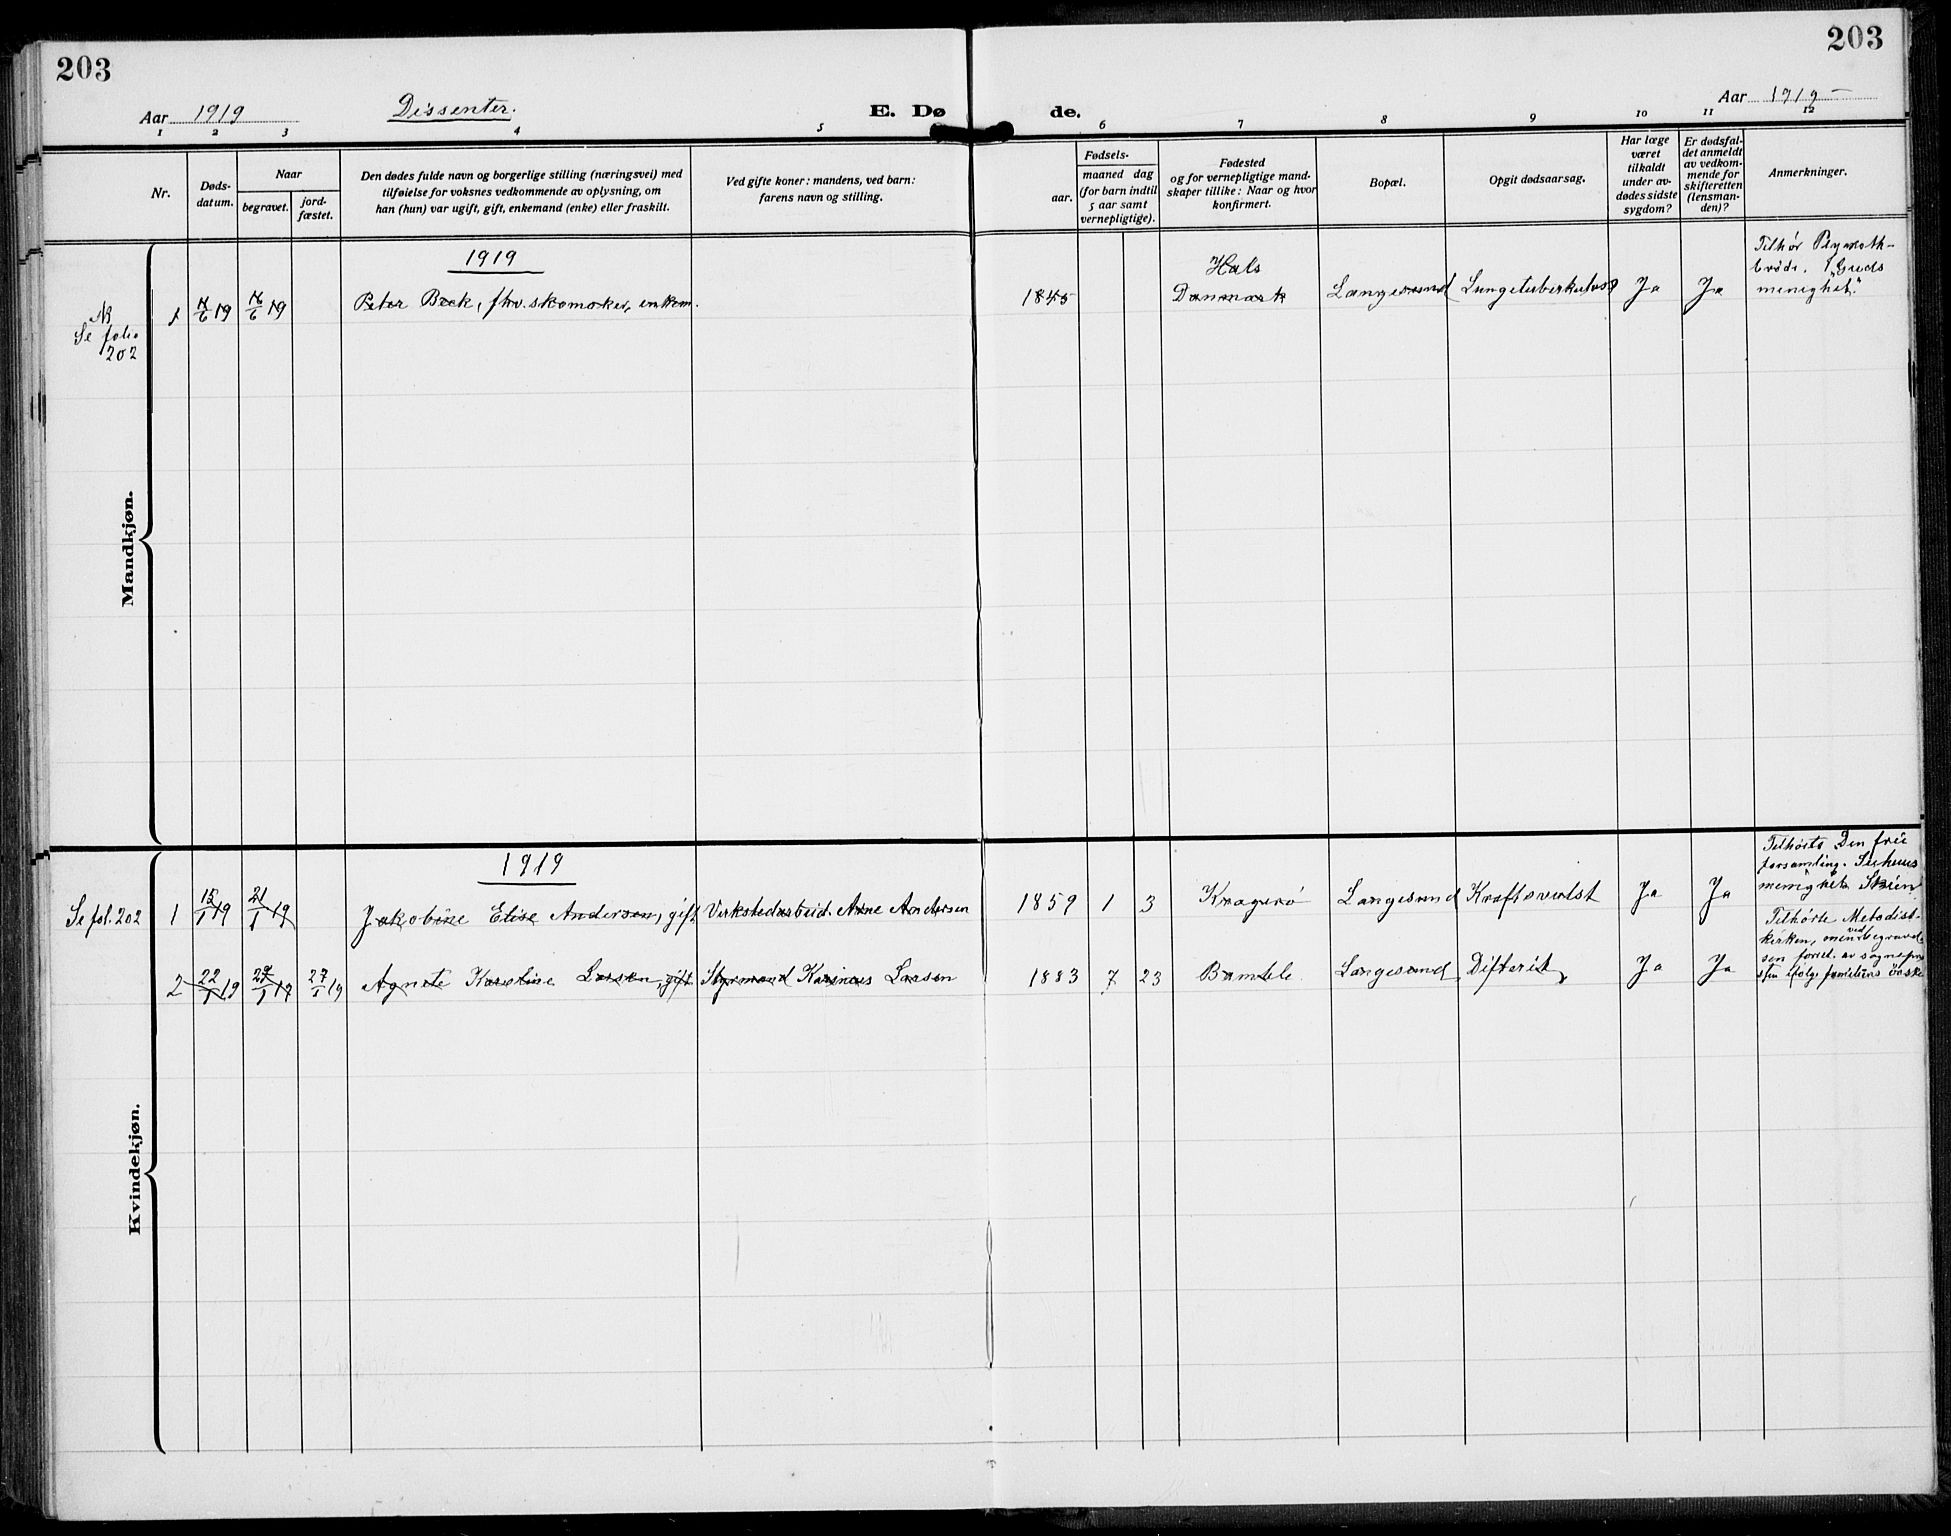 203
203
Aar 1919
Dissenter.
E. Dø
de.
Aar 1919
1 2 3 4 5 6 7 8 9 10 11 12
Nr.
Døds-
datum.
Naar
begravet.
jord-
fæstet.
Den dødes fulde navn og borgerlige stilling (næringsvei) med
tilføielse for voksnes vedkommende av oplysning, om
han (hun) var ugift, gift, enkemand (enke) eller fraskilt.
Ved gifte koner: mandens, ved barn:
farens navn og stilling.
Fødsels-
aar.
maaned dag
(for barn indtil
5 aar samt
vernepligtige).
Fødested
og for vernepligtige mand-
skaper tillike: Naar og hvor
konfirmert.
Bopæl.
Opgit dødsaarsag.
Har læge
været
tilkaldt
under av-
dødes sidste
sygdom?
Er dødsfal-
det anmeldt
av vedkom-
mende for
skifteretten
(lensman-
den)?
Anmerkninger.
Mandkjøn.
1919
NB
Se folio
202
1 6 19 6 19 Peter Beck, fhv. skomaker, enkem.
1845
Hals
Danmark
Langesund Lungetuberkulose Ja Ja
Tilhør Plymoth-
brødr. "Guds
menighet".
Kvindekjøn.
1919
Se fol. 202
1 15/1 19 21/1 19 Jakobine Elise Andersen, gift Verkstedarbeid. Arne Andersen 1859 1 3 Kragerø Langesund Kræftsvulst Ja Ja
Tilhørte Den frie
forsamling.
menighet Skien.
2 22/1 19 1 27/1 19 Agnete Karoline Larsen, gift Styrmand Karinius Larsen 1883 7 23 Bamble Langesund Difterit Ja Ja
Tilhørte Metodist-
kirken, men ved begravel-
sen foret. av sognepre-
sten ifølge familiens ønske